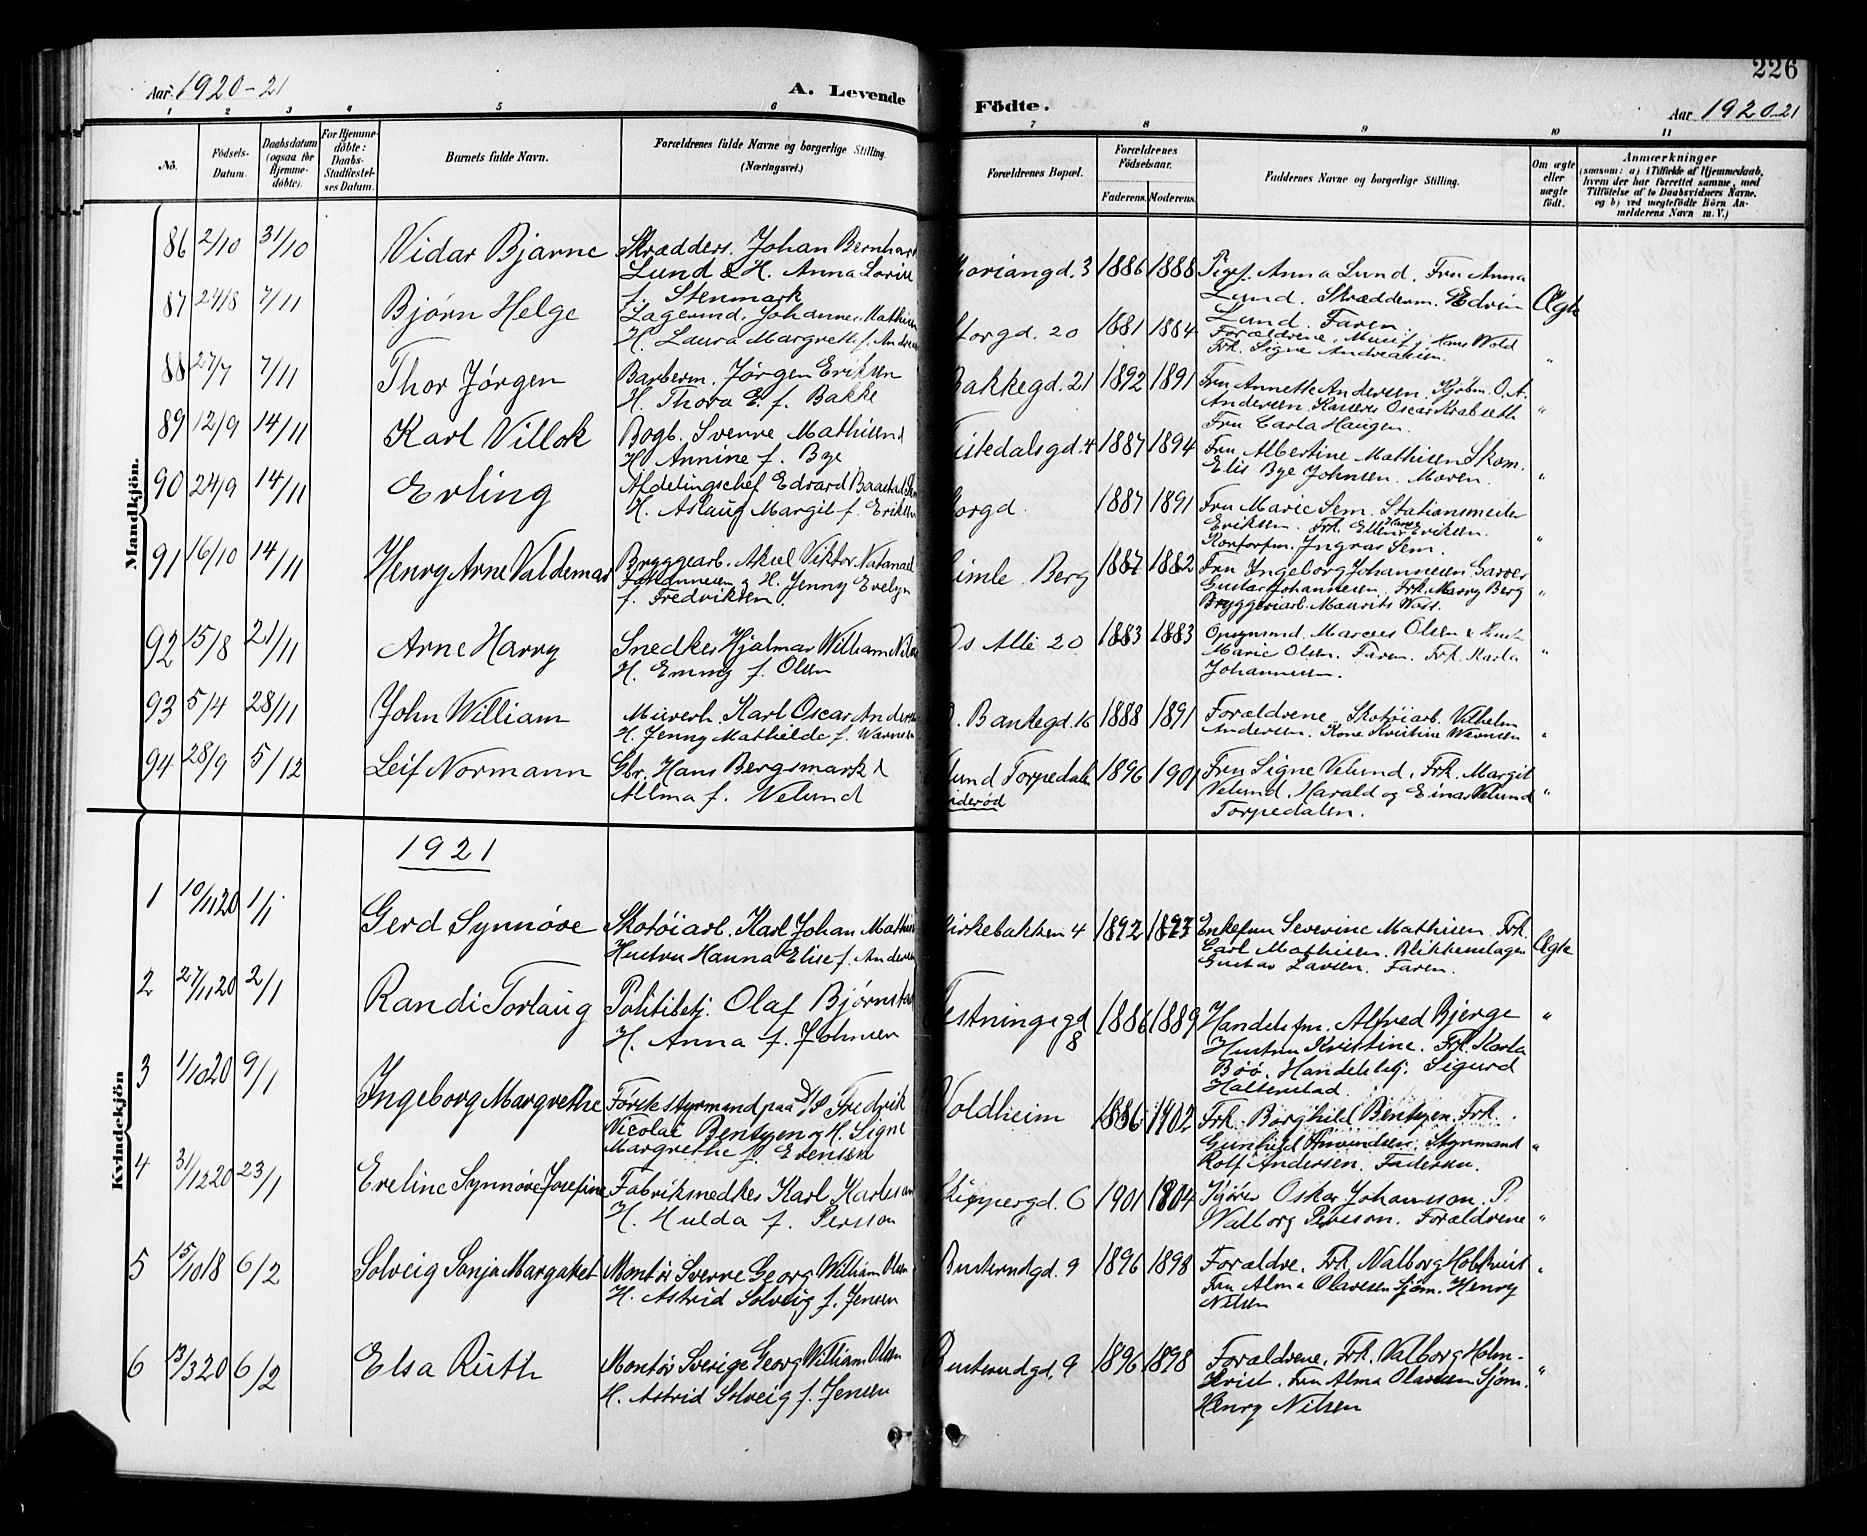 226
Aar: 1920-21
A. Levende
Födte.
Aar 1920-21
1 2 3 4 5 6 7 8 9 10 11
No.
Födsels-Datum.
Daabsdatum (ogsaa for Hjemmedöbte).
For Hjemmedöbte: Daabs-Stadfæstelses Datum.
Barnets fulde Navn.
Forældrenes fulde Navne og borgerlige Stilling.
(Næringsvei.)
Forældrenes Bopæl.
Forældrenes Födselsaar.
Faderens.
Moderens.
Faddernes Navne og borgerlige Stilling.
Om ægte eller uægte födt.
Anmærkninger
(saasom: a) i Tilfælde af Hjemmedaab,
hvem der har forrettet samme, med
Tilföielse af to Daabsvidners Navne,
og b) ved uægtefödte Börn An-
melderens Navn m. V.)
Mandkjön.
86 2/10 31/10 Vidar Bjarne Skrædders. Johan Bernhard 1886 1888 Pigef. Anna Lund. Fru Anna
Lund & H. Anna Lovise Lund. Skrædderm. Edvin Ægte
f. Stenmark Lund. Faren.
87 24/8 7/11 Bjørn Helge Lagermd. Johannes Mathisen Storgd. 20 1881 1884 Forældrene. Hans Wold
H. Laura Margrethe f. Andreasen Frk. Signe Andreasen. "
88 27/7 7/11 Thor Jørgen Barberm. Jørgen Eriksen Bakkegd. 21 1892 1891 Fru Annette Andersen. Kjøbm. O. A.
H. Thora E. f. Bakke Andersen. Kasserer Oscar Krabseth "
Fru Carla Haugen.
89 12/9 14/11 Karl Villok Bogb. Sverre Mathisen Tistedalsgd. 4 1887 1894 Fru Albertine Mathisen Skom.
H. Annine f. Bye Elis Bye Johnsen. Moren. "
90 24/9 14/11 Erling Afdelingschef Edvard Baastad Sem Storgd. 1887 1891 Fru Marie Sem. Stationsmester
H. Aslaug Margit f. Eriksen Eriksen. Frk. Ellinor Eriksen.
Ingvar Sem. "
91 16/10 14/11 Henry Arne Valdemar Bryggearb. Aksel Viktor Natanael Gimle. Berg 1887 1882 Fru Ingeborg Johannesen. Garver
Johannesen & H. Jenny Evelyn Gustav Johannesen. Frk. Marry Berg "
f. Fredriksen. Bryggeriarb. Maurits Wass.
92 15/8 21/11 Arne Harry Snedker Hjalmar William Nilsen Os Alle 20 1883 1883 Marcus Olsen & Hustru
H. Emmy f. Olsen Marie Olsen. Faren. Frk. Karla "
Johannesen.
93 5/4 28/11 John William Murerh. Karl Oscar Andersen O. Bankegd. 16 1888 1891 Forældrene. Skotøiarb. Vilhelm
H. Jenny Mathilde f. Warnsen Andersen. Kone Kristine Warnsen "
94 28/9 5/12 Leif Normann Gbr. Hans Bergsmark & Torpedalen 1896 1901 Fru Signe Velund. Frk. Margit
Allma f. Velund Idderød Velund. Harald og Einar Velund "
Torpedalen.
1921
Kvindekjön
1 10/11 20 1/1 Gerd Synnöve Skotøiarb. Karl Johan Mathisen Kirkebakken 4 1892 1893 Enkefru Severine Mathisen. Frk.
Hustru Hanna Elise f. Andersen Carl Mathisen. Blikkenslager Ægte
Gustav Larsen. Faren.
2 27/11 20 2/1 Randi Torlaug Politibetj. Olaf Bjørnstad Festningsgd 8 1886 1889 Handelsfm. Alfred Bjerge "
H. Anna f. Johnsen Hustru Kristine. Frk. Karla
Böö. Handelsbetj. Sigurd
Halbenstad.
3 1/10 20 9/1 Ingeborg Margrethe Förstestyrmand paa D/S Fredrik Voldheim 1886 1902 Frk. Borghild Bentzen. Frk.
Nicolai Bentzen & H. Signe Gunhild Amundsen. Styrmand "
Margrethe f. Evensen Rolf Andersen. Faderen.
4 31/12 20 23/1 Eveline Synnöve Josefine Fabriksnedker Karl Karlsson Skippergd. 6 1901 1804 Oskar Johansson. P.
H. Hulda f. Persson Walborg Persson. Forældrene "
5 15/10 18 6/2 Solveig Sonja Margaret Montør Sverre Georg William Olsen Busterudgd. 9 1896 1898 Forældre. Frk. Valborg Holmkvist "
H. Astrid Solveig f. Jensen Fru Alma Olavesen Sjøm. Henry
Nilsen
6 13/3 20 6/2 Elsa Ruth Montør Sverige Georg William Olsen Busterudgd. 9 1896 1898 Forældrene. Frk. Valborg Holm- "
H. Astrid Solveig f. Jensen kvist. Fru Alma Olavesen Sjøm.
Henry Nilsen